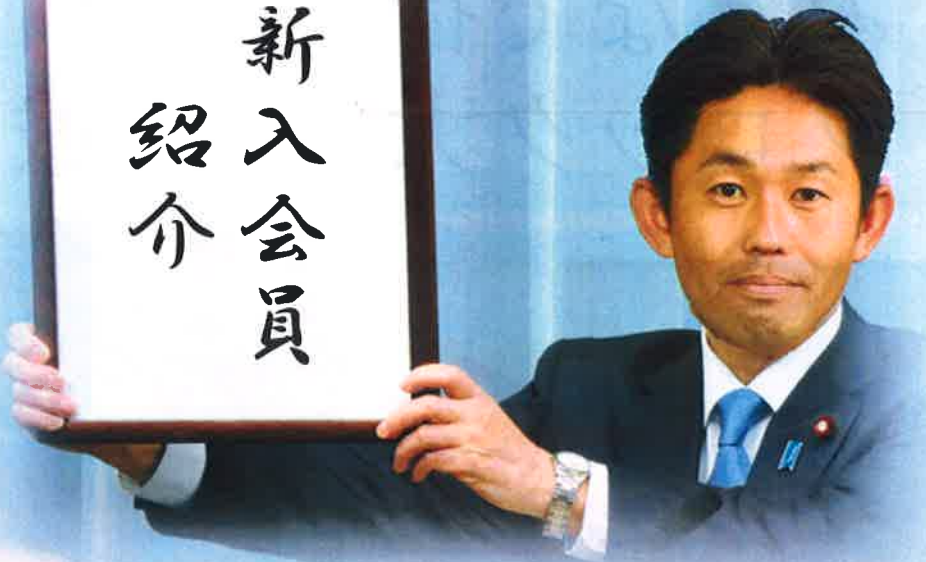 新入会員
紹介